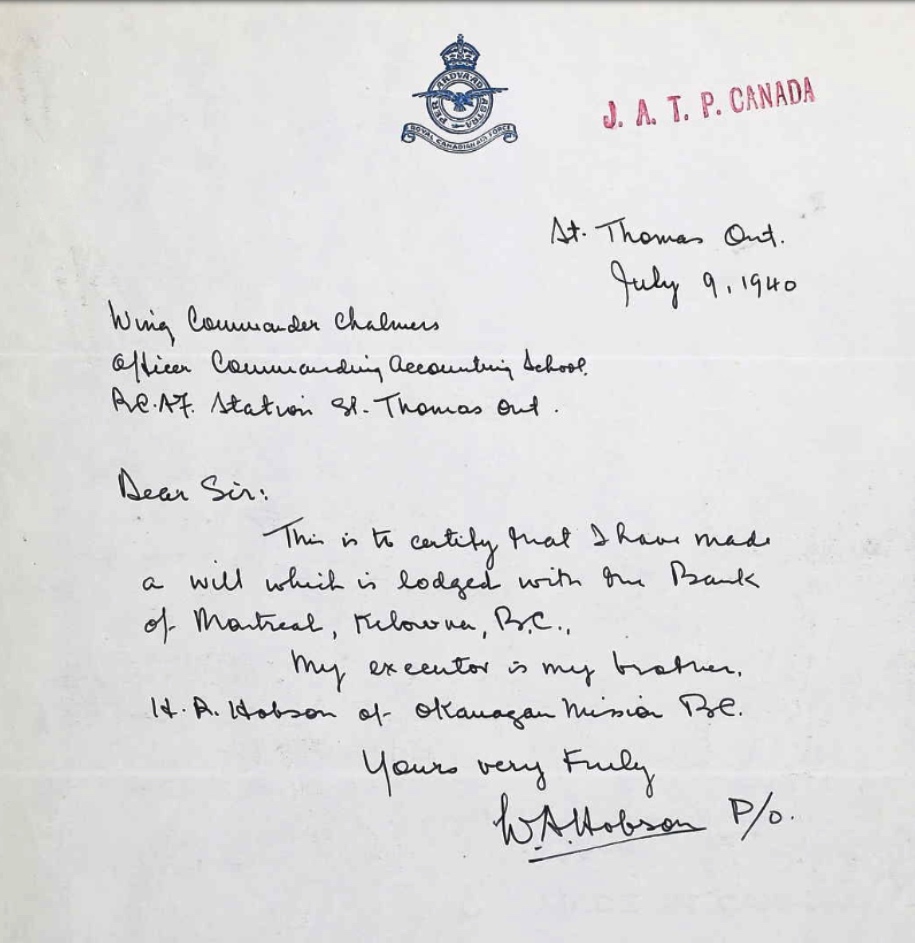 PER ARDVA AD ASTRA
ROYAL CANADIAN AIR FORCE
J. A. T. P. CANADA
St. Thomas Ont.
July 9, 1940
Wing Commander Chalmers
Officer Commanding Accounting School
R.C.A.F. Station St. Thomas Ont.
Dear Sir:
This is to certify that I have made
a will which is lodged with the Bank
of Montreal, Kelowna, B.C.,
My executor is my brother,
H. R. Hobson of Okanagan Mission B.C.
Yours very truly
W.A. Hobson P/O.